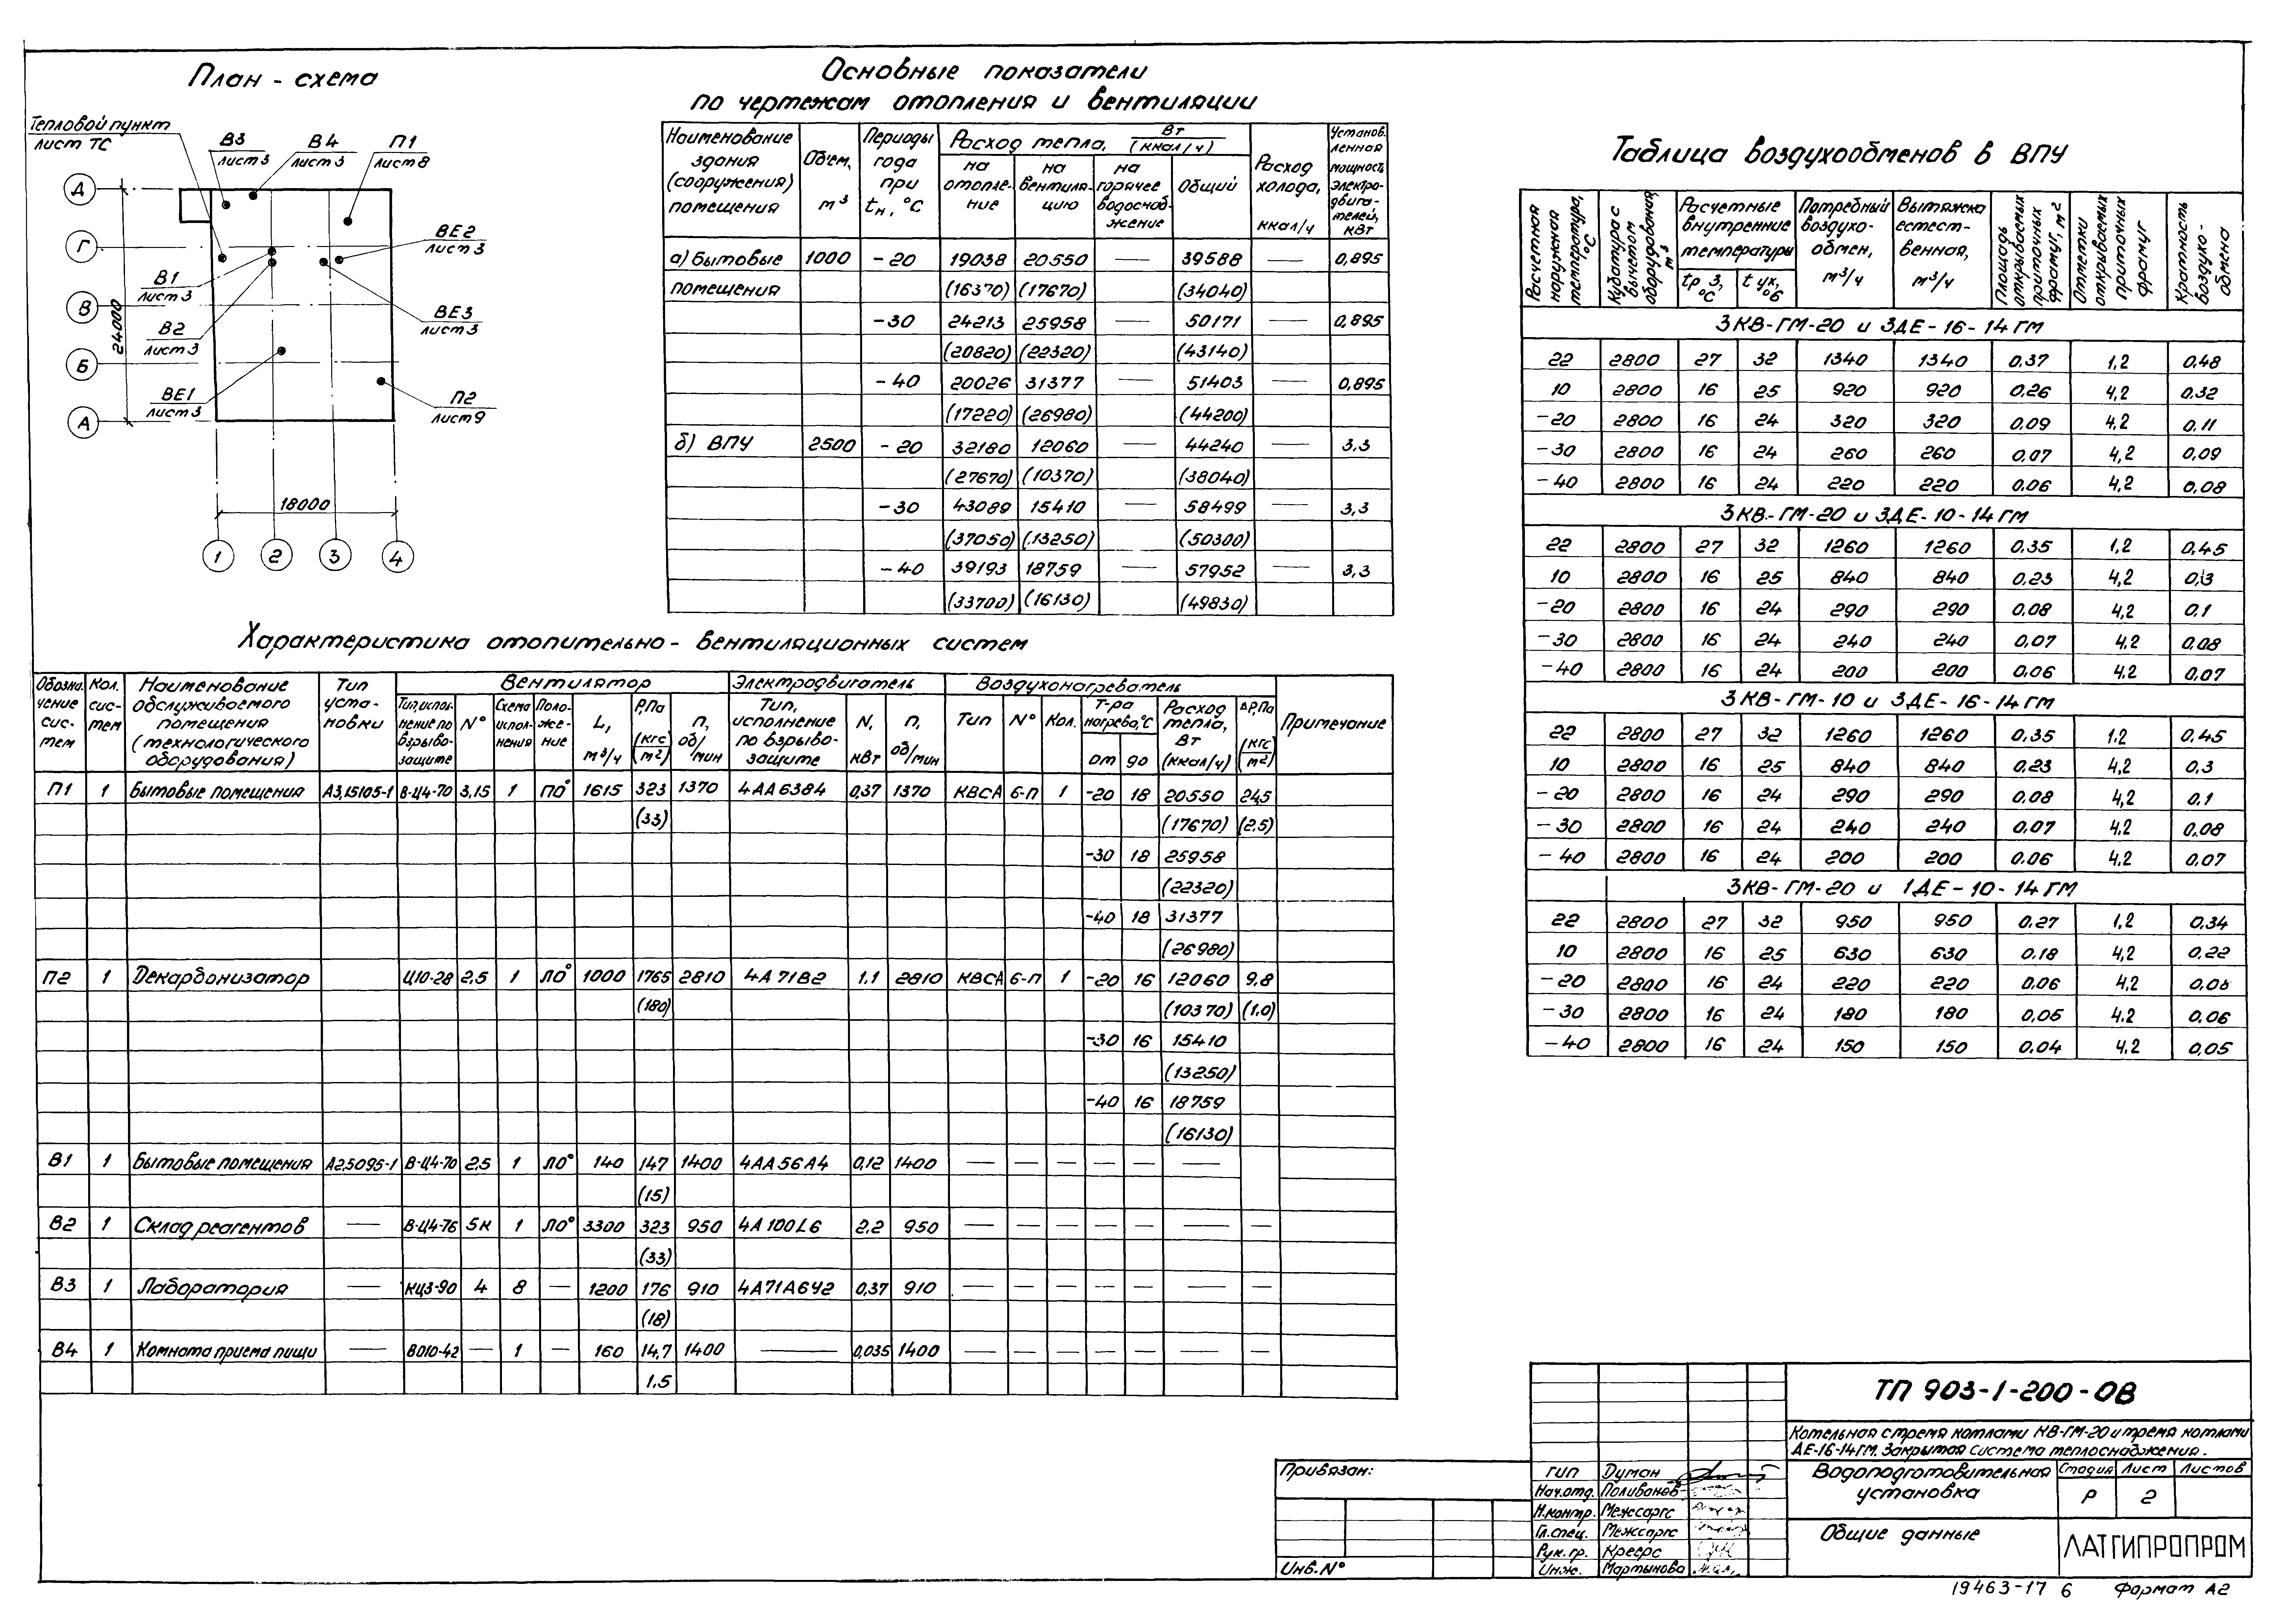 План - схема
Тепловой пункт
лист ТС
В3
лист 3
В4
лист 3
П1
лист 8
ВЕ2
лист 3
В1
лист 3
ВЕ3
лист 3
В2
лист 3
ВЕ1
лист 3
П2
лист 9
Д
Г
В
Б
А
24000
18000
1 2 3 4
Основные показатели
по чертежам отопления и вентиляции
Наименование здания (сооружения) помещения | Объем, м³ | Периоды года при tн, °С | Расход тепла, Вт (ккал/ч) | Расход холода, ккал/ч | Установленная мощность электродвигателей, кВт
на отопление | на вентиляцию | на горячее водоснабжение | Общий
а) Бытовые 1000 -20 19038 20550 — 39588 — 0,895
помещения (16370) (17670) (34040)
-30 24213 25958 — 50171 0,895
(20820) (22320) (43140)
-40 20026 31377 — 51403 — 0,895
(17220) (26980) (44200)
б) ВПУ 2500 -20 32180 12060 — 44240 — 3,3
(27670) (10370) (38040)
-30 43089 15410 — 58499 — 3,3
(37050) (13250) (50300)
-40 39193 18759 — 57952 — 3,3
(33700) (16130) (49830)
Таблица воздухообменов в ВПУ
Расчетная наружная температура, °С | Кубатура с вычетом оборудования, м³ | Расчетные внутренние температуры | Потребный воздухообмен, м³/ч | Вытяжка естественная, м³/ч | Площадь открываемых приточных фрамуг, м² | Отметки открываемых приточных фрамуг | Кратность воздухообмена
tр.з, °С | t ух, °С
3 КВ-ГМ-20 и 3ДЕ-16-14 ГМ
22 2800 27 32 1340 1340 0,37 1,2 0,48
10 2800 16 25 920 920 0,26 4,2 0,32
-20 2800 16 24 320 320 0,09 4,2 0,11
-30 2800 16 24 260 260 0,07 4,2 0,09
-40 2800 16 24 220 220 0,06 4,2 0,08
3 КВ-ГМ-20 и 3ДЕ-10-14 ГМ
22 2800 27 32 1260 1260 0,35 1,2 0,45
10 2800 16 25 840 840 0,23 4,2 0,3
-20 2800 16 24 290 290 0,08 4,2 0,1
-30 2800 16 24 240 240 0,07 4,2 0,08
-40 2800 16 24 200 200 0,06 4,2 0,07
3 КВ-ГМ-10 и 3ДЕ-16-14 ГМ
22 2800 27 32 1260 1260 0,35 1,2 0,45
10 2800 16 25 840 840 0,23 4,2 0,3
-20 2800 16 24 290 290 0,08 4,2 0,1
-30 2800 16 24 240 240 0,07 4,2 0,08
-40 2800 16 24 200 200 0,06 4,2 0,07
3 КВ-ГМ-20 и 1ДЕ-10-14 ГМ
22 2800 27 32 950 950 0,27 1,2 0,34
10 2800 16 25 630 630 0,18 4,2 0,22
-20 2800 16 24 220 220 0,06 4,2 0,08
-30 2800 16 24 180 180 0,05 4,2 0,06
-40 2800 16 24 150 150 0,04 4,2 0,05
Характеристика отопительно-вентиляционных систем
Обозначение систем | Кол. систем | Наименование обслуживаемого помещения (технологического оборудования) | Тип установки | Вентилятор | Электродвигатель | Воздухонагреватель | Примечание
Тип, исполнение по взрывозащите | № | Схема исполнения | Положение | L, м³/ч | Р, Па (кгс/м²) | n, об/мин | Тип, исполнение по взрывозащите | N, кВт | n, об/мин | Тип | № | Кол. | Т-ра нагрева, °С от до | Расход тепла, Вт (ккал/ч) | ΔР, Па (кгс/м²)
П1 1 Бытовые помещения А3,15105-1 В-Ц4-70 3,15 1 ПО° 1615 323 1370 4АА63В4 0,37 1370 КВСА 6-П 1 -20 18 20550 24,5
(33) (17670) (2,5)
-30 18 25958
(22320)
-40 18 31377
(26980)
П2 1 Декарбонизатор Ц10-28 2,5 1 ЛО° 1000 1765 2810 4А71В2 1,1 2810 КВСА 6-П 1 -20 16 12060 9,8
(180) (10370) (1,0)
-30 16 15410
(13250)
-40 16 18759
(16130)
В1 1 Бытовые помещения А2,5095-1 В-Ц4-70 2,5 1 ЛО° 140 147 1400 4АА56А4 0,12 1400 — — — — — —
(15)
В2 1 Склад реагентов — В-Ц4-76 5К 1 ЛО° 3300 323 950 4А100L6 2,2 950 — — — — — — —
(33)
В3 1 Лаборатория — КЦ3-90 4 8 — 1200 176 910 4А71А6У2 0,37 910 — — — — — — —
(18)
В4 1 Комната приема пищи — В010-42 — 1 — 160 14,7 1400 — 0,035 1400 — — — — — — —
1,5
Привязан:
Инв.№
ТП 903-1-200-ОВ
Котельная с тремя котлами КВ-ГМ-20 и тремя котлами
ДЕ-16-14ГМ. Закрытая система теплоснабжения.
ГИП Думан
Нач.отд. Поливанов
Н.контр. Межсаргс
Гл.спец. Межсаргс
Рук.гр. Креерс
Инж. Мартынова
Водоподготовительная установка
Стадия Лист Листов
Р 2
Общие данные
ЛАТГИПРОПРОМ
19463-17 6 Формат А2